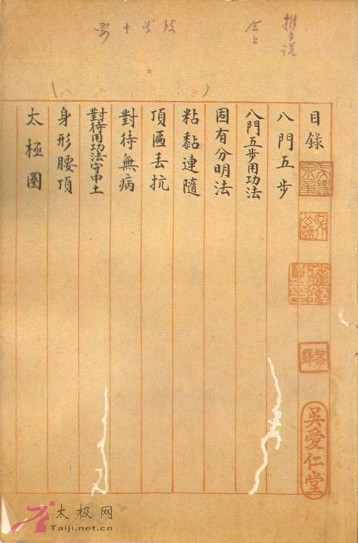 目錄
八門五步
八門五步用功法
固有分明法
粘黏連隨
頂匾丟抗
對待無病
對待用功法守中土
身形腰頂
太極圈
吳愛仁堂
太极网
Taiji.net.cn